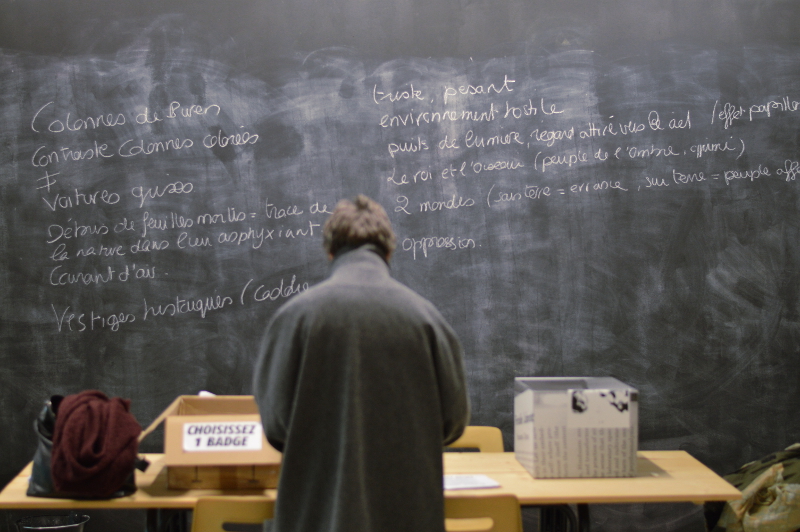 Colonnes de Buren
Contraste colonnes colorées
≠
Voitures grises
Détours de feuilles mortes = trace de
la nature dans lieu asphyxiant
Courant d'air.
Vestiges historiques (
triste, pesant
environnement hostile
puits de lumière, regard attiré vers le ciel (effet papillon
Le roi et l'oiseau (peuple de l'ombre, opprimé)
2 mondes (sous terre = errance, sur terre = peuple
oppression.
CHOISISSEZ
1 BADGE